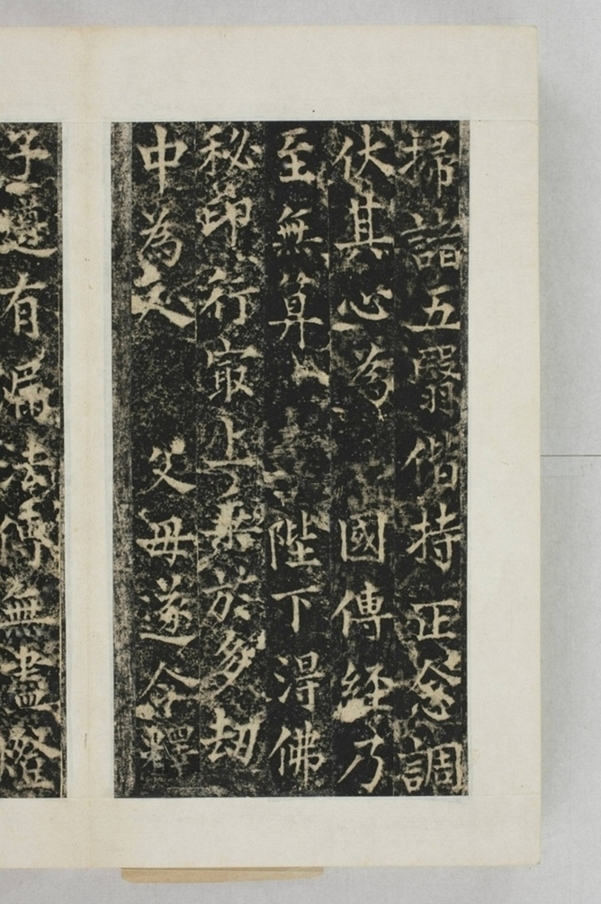 掃諸五翳偕持正念調
伏其心為國傳経乃
至無算陛下淂佛
秘印行㝡上乘於多劫
中為父父母遂令釋
子還有属法傳無盡燈